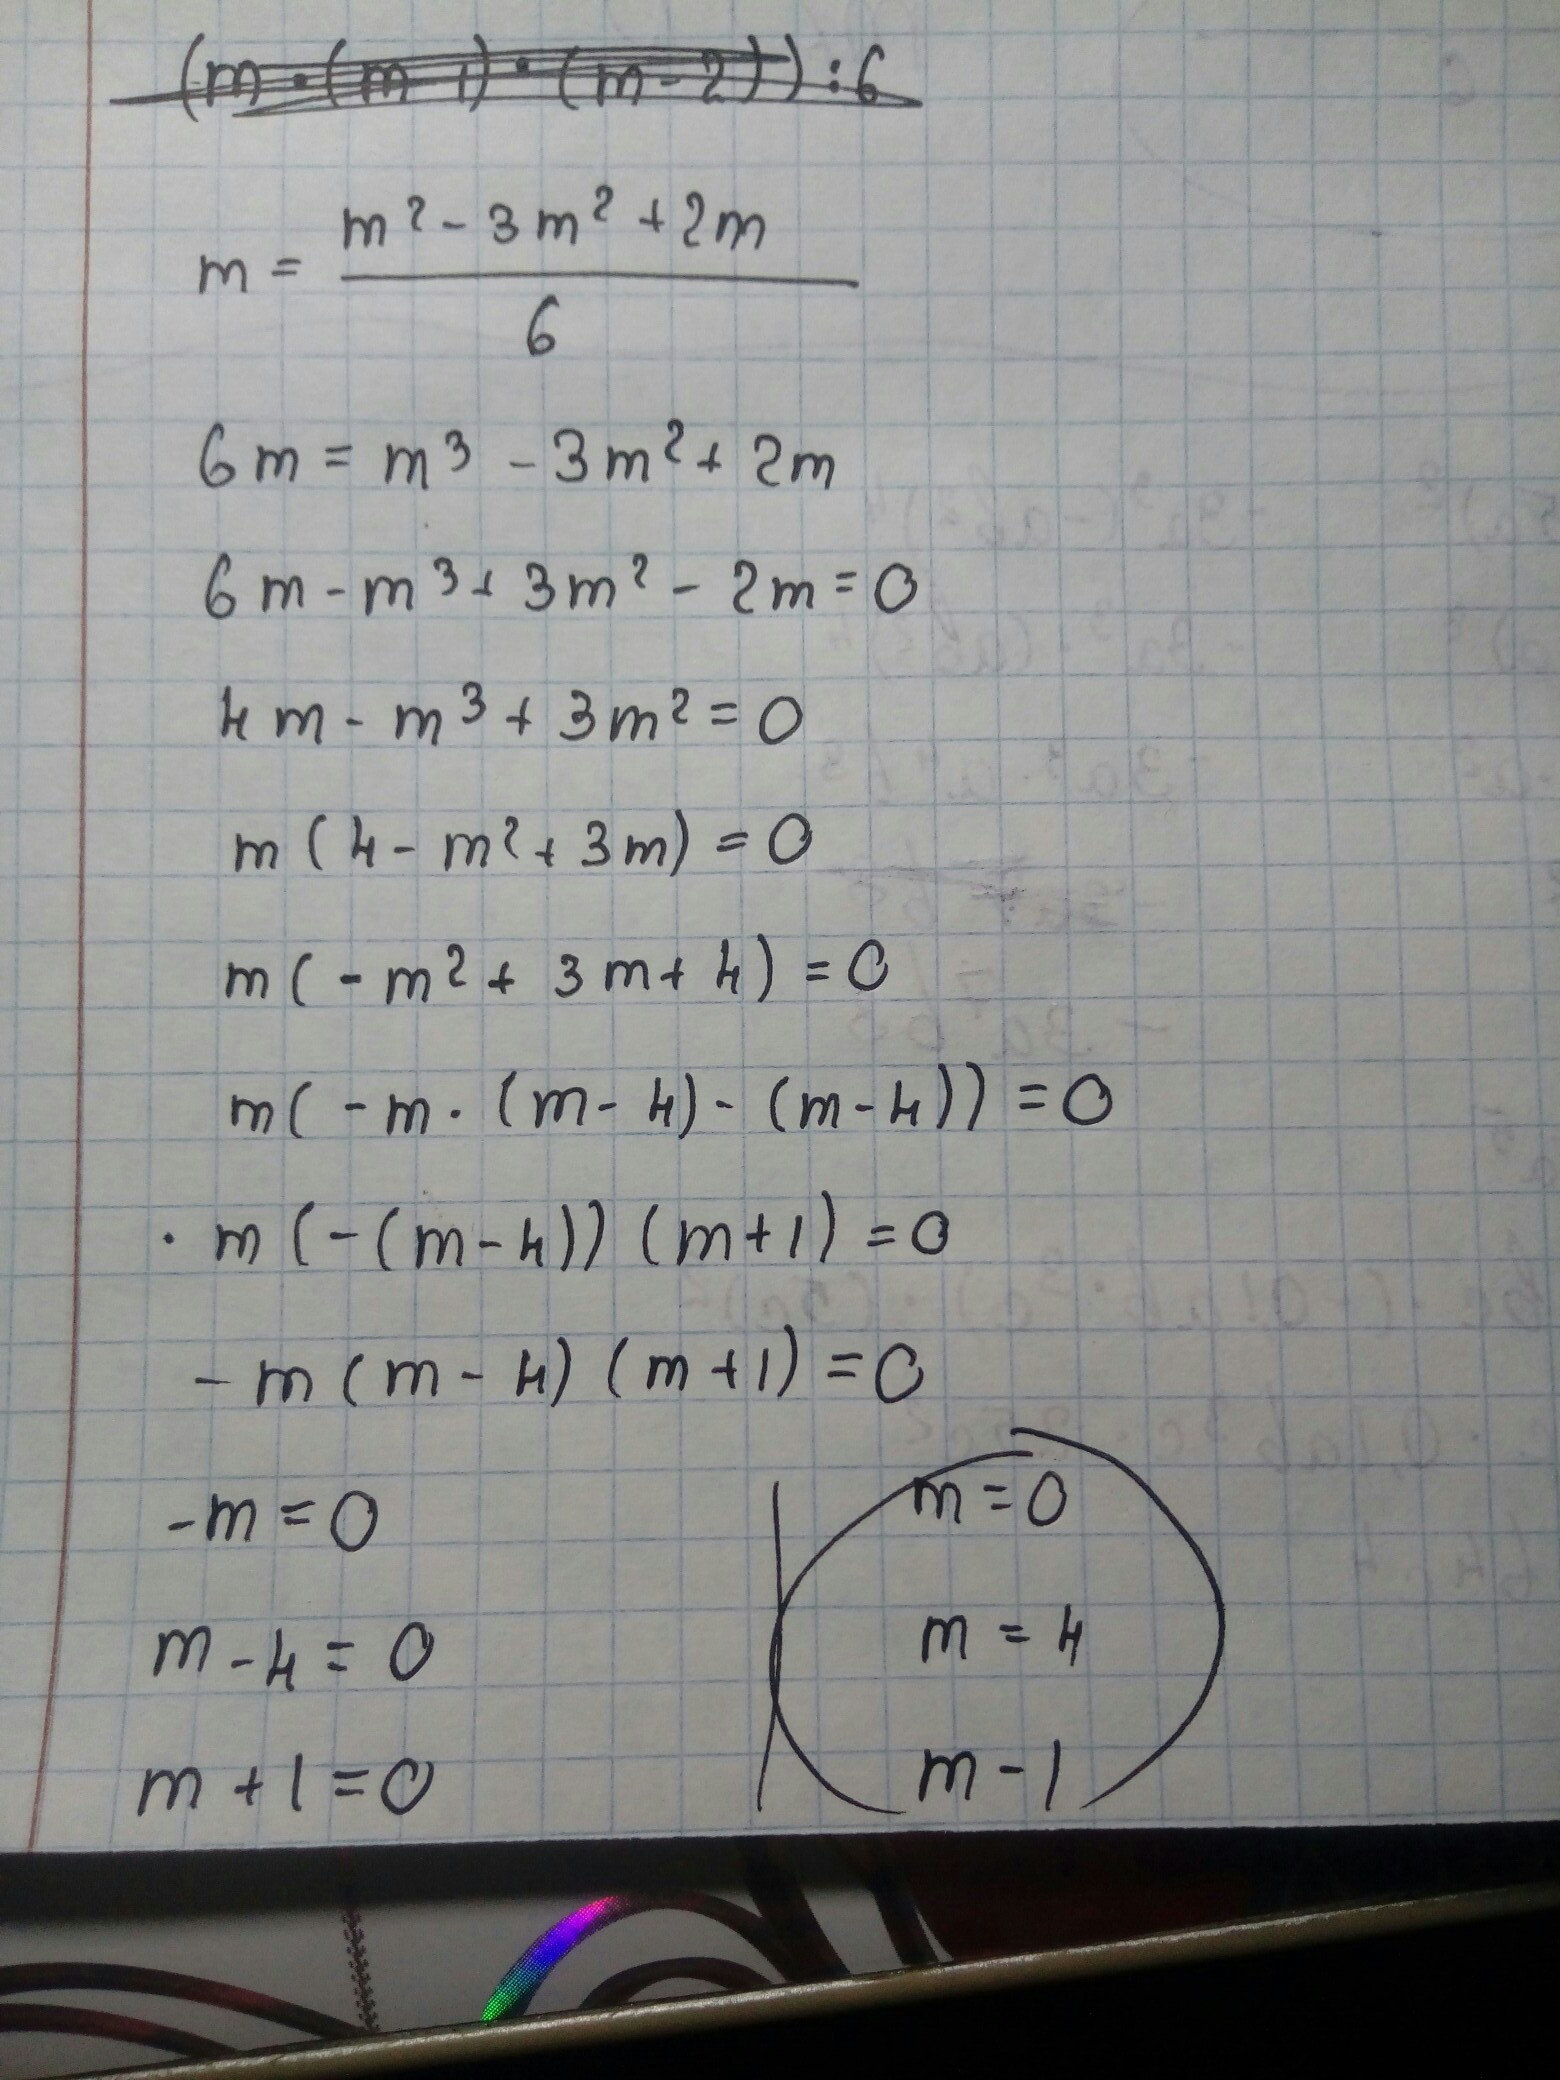 (m · (m-1) · (m-2)) : 6
m = \frac{m² - 3m² + 2m}{6}
6m = m³ - 3m² + 2m
6m - m³ + 3m² - 2m = 0
4m - m³ + 3m² = 0
m(4 - m² + 3m) = 0
m(-m² + 3m + 4) = 0
m(-m · (m-4) - (m-4)) = 0
· m(-(m-4))(m+1) = 0
-m(m-4)(m+1) = 0
-m = 0 | m = 0
m - 4 = 0 | m = 4
m + 1 = 0 | m - 1